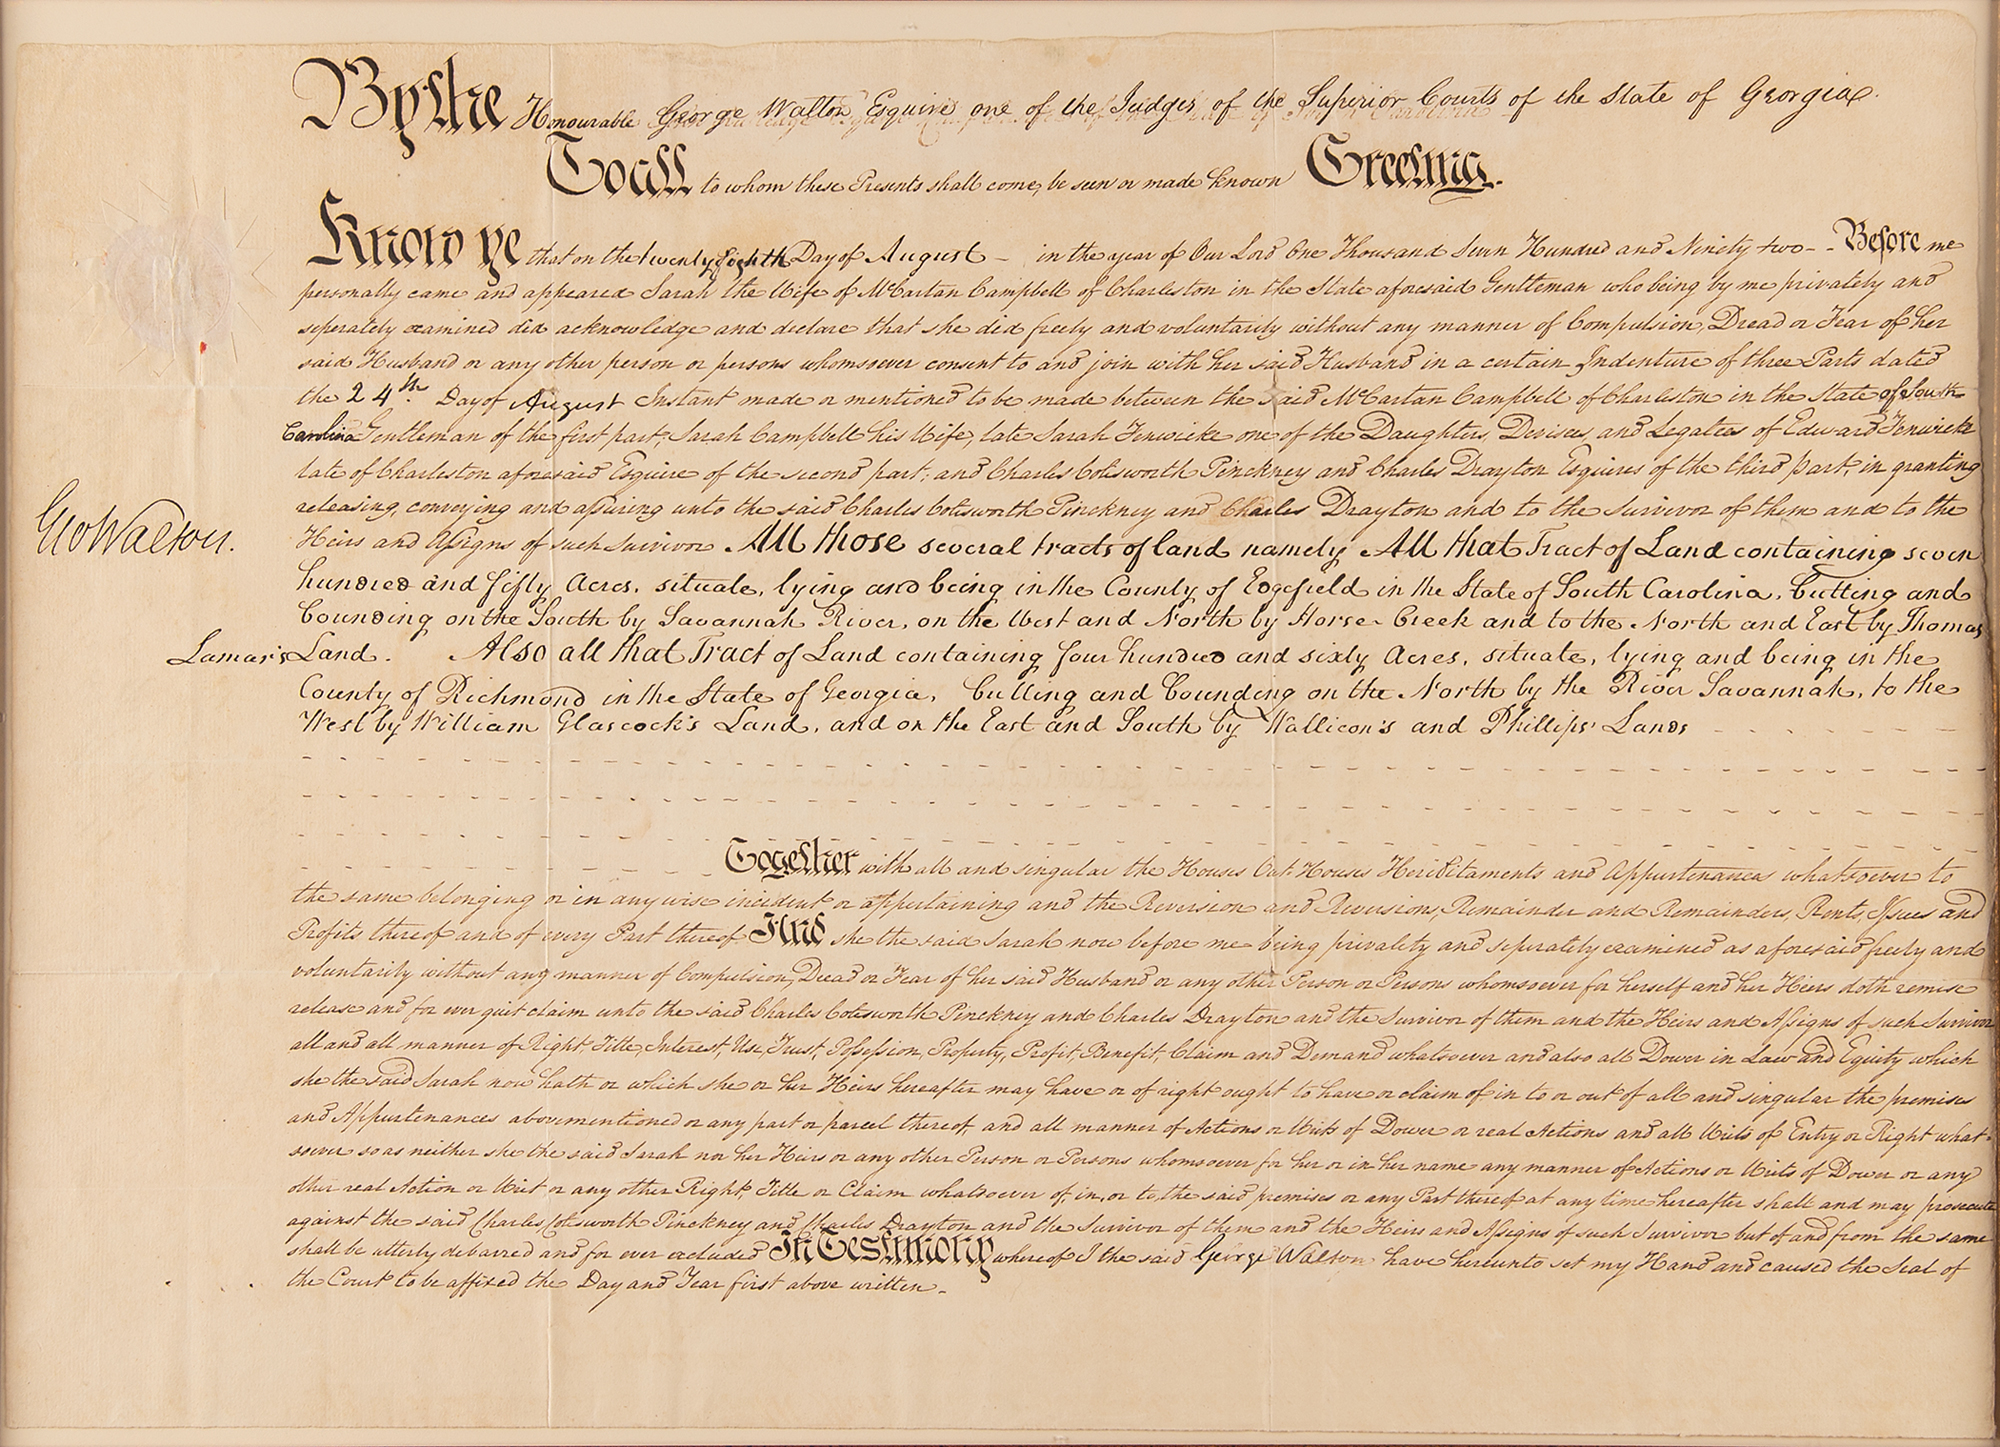 By the Honourable George Walton Esquire one of the Judges of the Superior Courts of the State of Georgia.
To all to whom these Presents shall come, be seen or made known Greeting.
Know ye that on the twenty Eighth Day of August - in the year of Our Lord One Thousand Seven Hundred and Ninety two - - Before me
personally came and appeared Sarah the Wife of McCartan Campbell of Charleston in the State aforesaid Gentleman who being by me privately and
seperately examined did acknowledge and declare that she did freely and voluntarily without any manner of Compulsion, Dread or Fear of her
said Husband or any other person or persons whomsoever consent to and join with her said Husband in a certain Indenture of three Parts dated
the 24th. Day of August Instant made or mentioned to be made between the said McCartan Campbell of Charleston in the State of South
Carolina Gentleman of the first part; Sarah Campbell his Wife, late Sarah Fenwicke one of the Daughters, Devisees, and Legatees of Edward Fenwicke
late of Charleston aforesaid Esquire of the second part; and Charles Cotesworth Pinckney and Charles Drayton Esquires of the third part; in granting
releasing, conveying and assuring unto the said Charles Cotesworth Pinckney and Charles Drayton and to the Survivor of them and to the
Heirs and Assigns of such Survivor All those several tracts of land namely All that Tract of Land containing seven
hundred and fifty Acres, situate, lying and being in the County of Edgefield in the State of South Carolina, butting and
bounding on the South by Savannah River, on the West and North by Horse Creek and to the North and East by Thomas
Lamar's Land. Also all that Tract of Land containing four hundred and sixty Acres, situate, lying and being in the
County of Richmond in the State of Georgia, butting and bounding on the North by the River Savannah, to the
West by William Glascock's Land, and on the East and South by Wallicon's and Phillips' Lands
Together with all and singular the Houses Out Houses Heriditaments and Appurtenances whatsoever to
the same belonging or in any wise incident or appertaining and the Reversion and Reversions, Remainder and Remainders, Rents, Issues and
Profits thereof and of every Part thereof And she the said Sarah now before me being privately and seperately examined as aforesaid freely and
voluntarily without any manner of Compulsion, Dread or Fear of her said Husband or any other Person or Persons whomsoever for herself and her Heirs doth remise
release and for ever quit claim unto the said Charles Cotesworth Pinckney and Charles Drayton and the Survivor of them and the Heirs and Assigns of such Survivor
all and all manner of Right, Title, Interest, Use, Trust, Possession, Property, Profit, Benefit, Claim and Demand whatsoever and also all Dower in Law and Equity which
she the said Sarah now hath or which she or her Heirs hereafter may have or of right ought to have or claim of in to or out of all and singular the premises
and Appurtenances abovementioned or any part or parcel thereof, and all manner of Actions or Writs of Dower or real Actions and all Writs of Entry or Right what-
soever so as neither she the said Sarah nor her Heirs or any other Person or Persons whomsoever for her or in her name any manner of Actions or Writs of Dower or any
other real Action or Writ or any other Right, Title or Claim whatsoever of, in, or to, the said premises or any Part thereof at any time hereafter shall and may prosecute
against the said Charles Cotesworth Pinckney and Charles Drayton and the Survivor of them and the Heirs and Assigns of such Survivor but of and from the same
shall be utterly debarred and for ever excluded In Testimony whereof I the said George Walton have hereunto set my Hand and caused the Seal of
the Court to be affixed the Day and Year first above written.
Geo Walton.